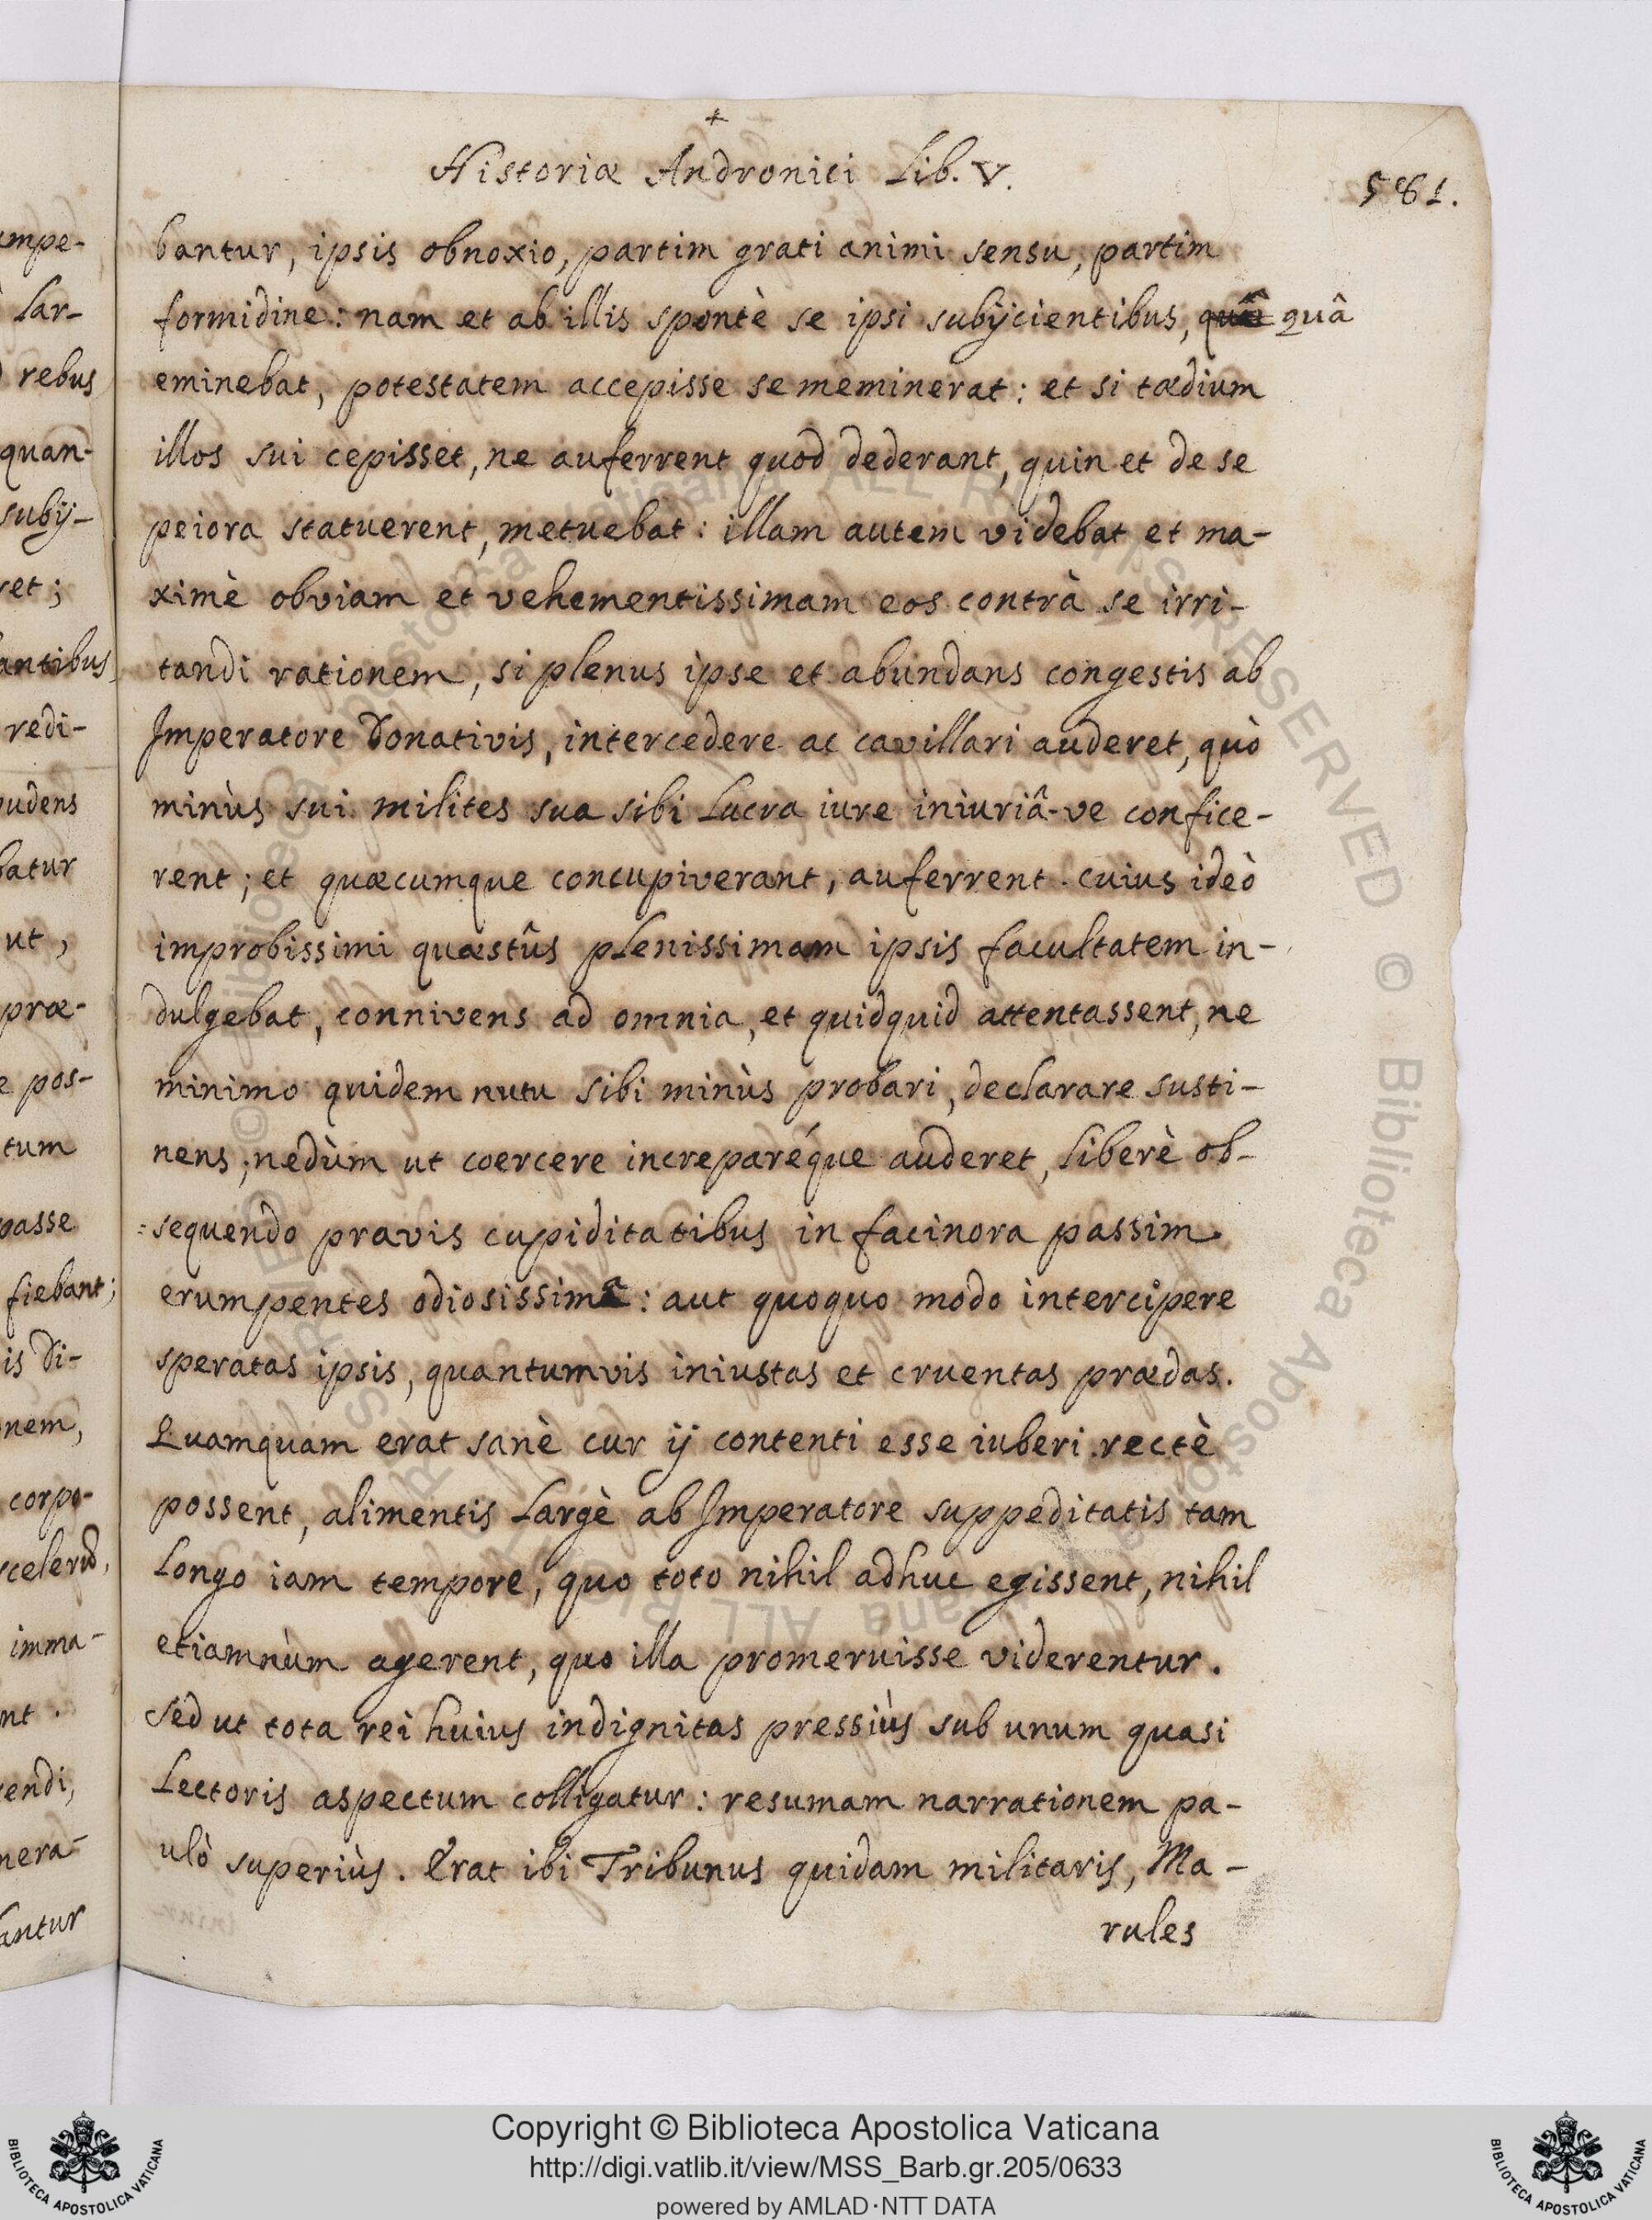 Historiæ Andronici Lib. V.
581.
bantur, ipsis obnoxio, partim grati animi sensu, partim
formidine: nam et ab illis spontè se ipsi subijcientibus, quâ
eminebat, potestatem accepisse se meminerat: et si tædium
illos sui cepisset, ne auferrent quod dederant, quin et de se
peiora statuerent, metuebat: illam autem videbat et ma-
ximè obviam et vehementissimam eos contrà se irri-
tandi rationem, si plenus ipse et abundans congestis ab
Imperatore Donativis, intercedere ac cavillari auderet, quò
minùs sui milites sua sibi Lucra iure iniuriâ-ve confice-
rent; et quæcumque concupiverant, auferrent. cuius ideò
improbissimi quæstûs plenissimam ipsis facultatem in-
dulgebat, connivens ad omnia, et quidquid attentassent, ne
minimo quidem nutu sibi minùs probari, declarare susti-
nens, nedùm ut coercere increparéque auderet, Liberè ob-
sequendo pravis cupiditatibus in facinora passim
erumpentes odiosissima: aut quoquo modo intercipere
speratas ipsis, quantumvis iniustas et cruentas prædas.
Quamquam erat sanè cur ij contenti esse iuberi rectè
possent, alimentis Largè ab Imperatore suppeditatis tam
Longo iam tempore, quo toto nihil adhuc egissent, nihil
etiamnùm agerent, quo illa promeruisse viderentur.
Sed ut tota rei huius indignitas pressiùs sub unum quasi
Lectoris aspectum colligatur: resumam narrationem pa-
ulò superiùs. Erat ibi Tribunus quidam militaris, Ma-
rules
umpe-
Lar-
rebus
quan-
subij-
ret;
antibus
redi-
pudens
batur
ut,
præ-
e pos-
tum
passe
fiebant;
is Di-
nem,
corpo-
imma-
nt.
endi,
nera-
antur
© Biblioteca Apostolica Vaticana ALL RIGHTS RESERVED
© Biblioteca Apostolica Vaticana ALL RIGHTS RESERVED
Copyright © Biblioteca Apostolica Vaticana
http://digi.vatlib.it/view/MSS_Barb.gr.205/0633
powered by AMLAD·NTT DATA
BIBLIOTECA APOSTOLICA VATICANA
BIBLIOTECA APOSTOLICA VATICANA